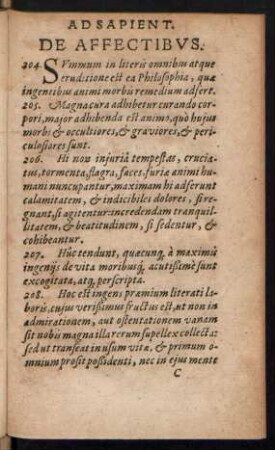 AD SAPIENT.
DE AFFECTIBVS.
204. SVmmum in literis omnibus atque
eruditione est ea Philosophia, quæ
ingentibus animi morbis remedium adfert.
205. Magna cura adhibetur curando cor-
pori, major adhibenda est animo, quò hujus
morbi & occultiores, & graviores, & peri-
culosiores sunt.
206. Hi non injuriâ tempestas, crucia-
tus, tormenta, flagra, faces, furiæ animi hu-
mani nuncupantur, maximam hi adferunt
calamitatem, & indicibiles dolores, si re-
gnant, si agitentur: incredendam tranquil-
litatem, & beatitudinem, si sedentur, &
cohibeantur.
207. Hùc tendunt, quæcunq; à maximis
ingenijs de vita moribusq; acutissimè sunt
excogitata, atq; perscripta.
208. Hoc est ingens præmium literati la-
boris, ejus verissimus fructus est, ut non in
admirationem, aut ostentationem vanam
sit nobis magna illarcrum supellex collecta:
sed ut transeat in usum vitæ, & primum o-
mnium prosit possidenti, nec in ejus mente
C